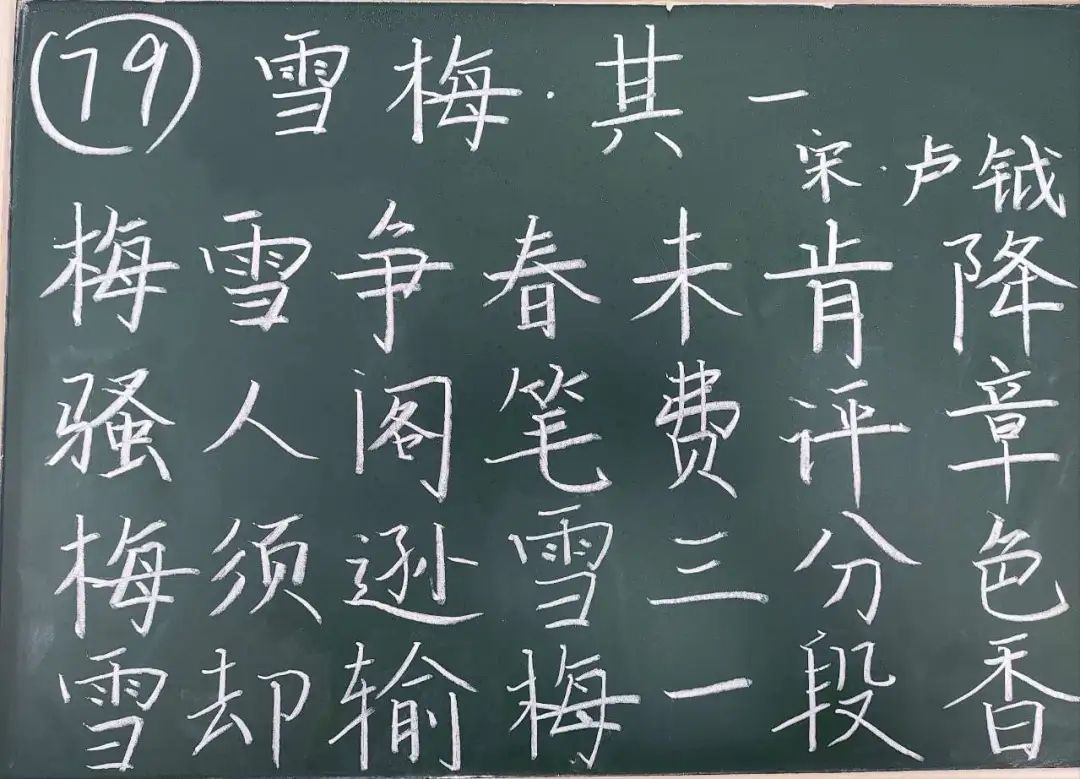 79 雪梅·其一
宋·卢钺
梅雪争春未肯降
骚人阁笔费评章
梅须逊雪三分色
雪却输梅一段香